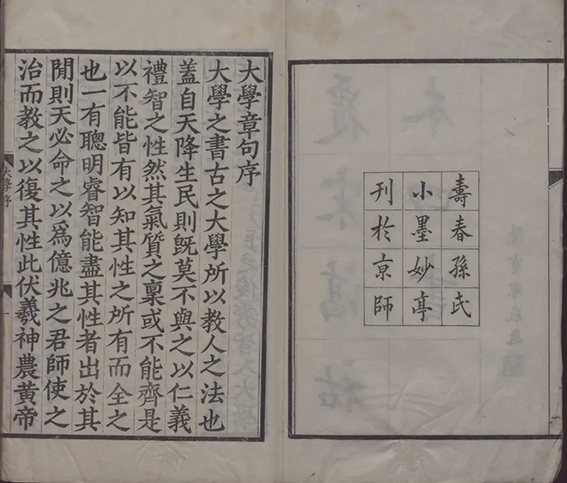 壽春孫氏
小墨妙亭
刊於京師
大學章句序
大學之書古之大學所以教人之法也
蓋自天降生民則既莫不與之以仁義
禮智之性然其氣質之稟或不能齊是
以不能皆有以知其性之所有而全之
也一有聰明睿智能盡其性者出於其
閒則天必命之以爲億兆之君師使之
治而教之以復其性此伏羲神農黃帝
大學序